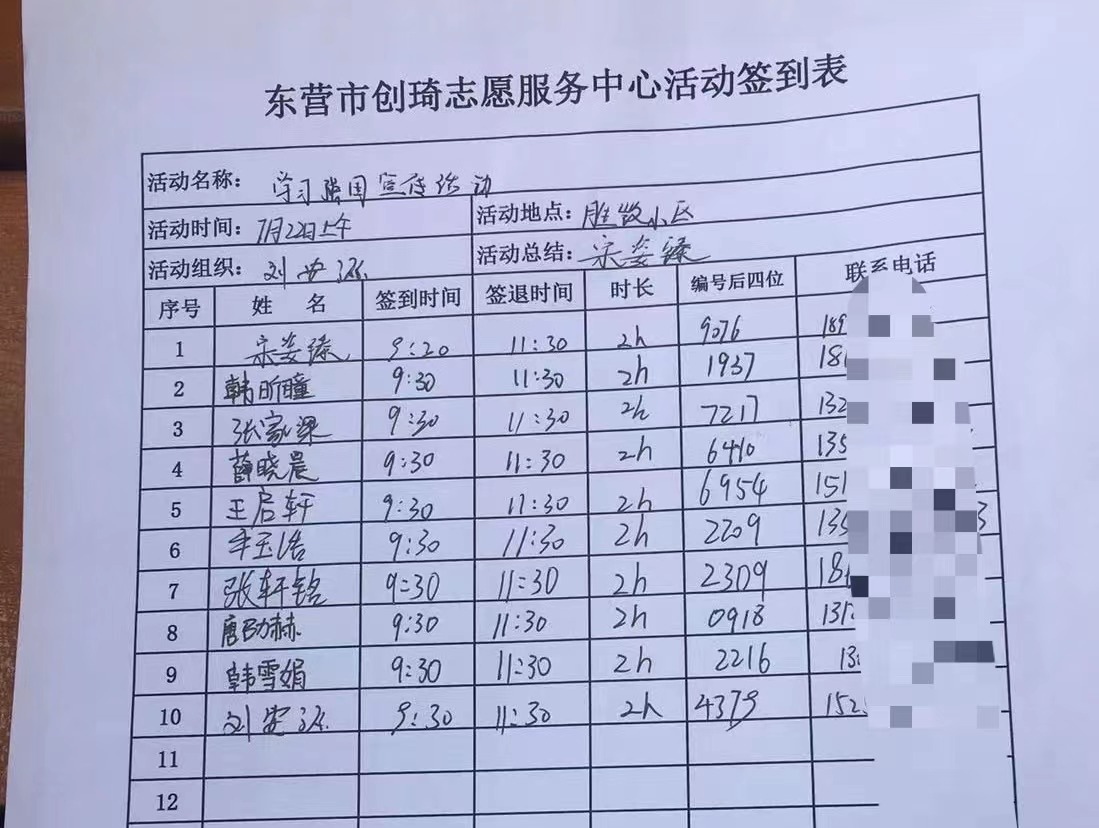 东营市创琦志愿服务中心活动签到表
活动名称: 学习强国宣传活动
活动时间: 7月22日上午 活动地点: 胜牧小区
活动组织: 刘安派 活动总结: 宋姿臻
序号 姓 名 签到时间 签退时间 时长 编号后四位 联系电话
1 宋姿臻 9:20 11:30 2h 9076 189
2 韩昕瞳 9:30 11:30 2h 1937 18
3 张家梁 9:30 11:30 2h 7217 132
4 薛晓晨 9:30 11:30 2h 6410 135
5 王启轩 9:30 11:30 2h 6954 151
6 玉浩 9:30 11:30 2h 2209 135 3
7 张轩铭 9:30 11:30 2h 2309 18
8 唐劭赫 9:30 11:30 2h 0918 131
9 韩雪娟 9:30 11:30 2h 2216 13
10 刘安派 9:30 11:30 2h 4379 152
11
12